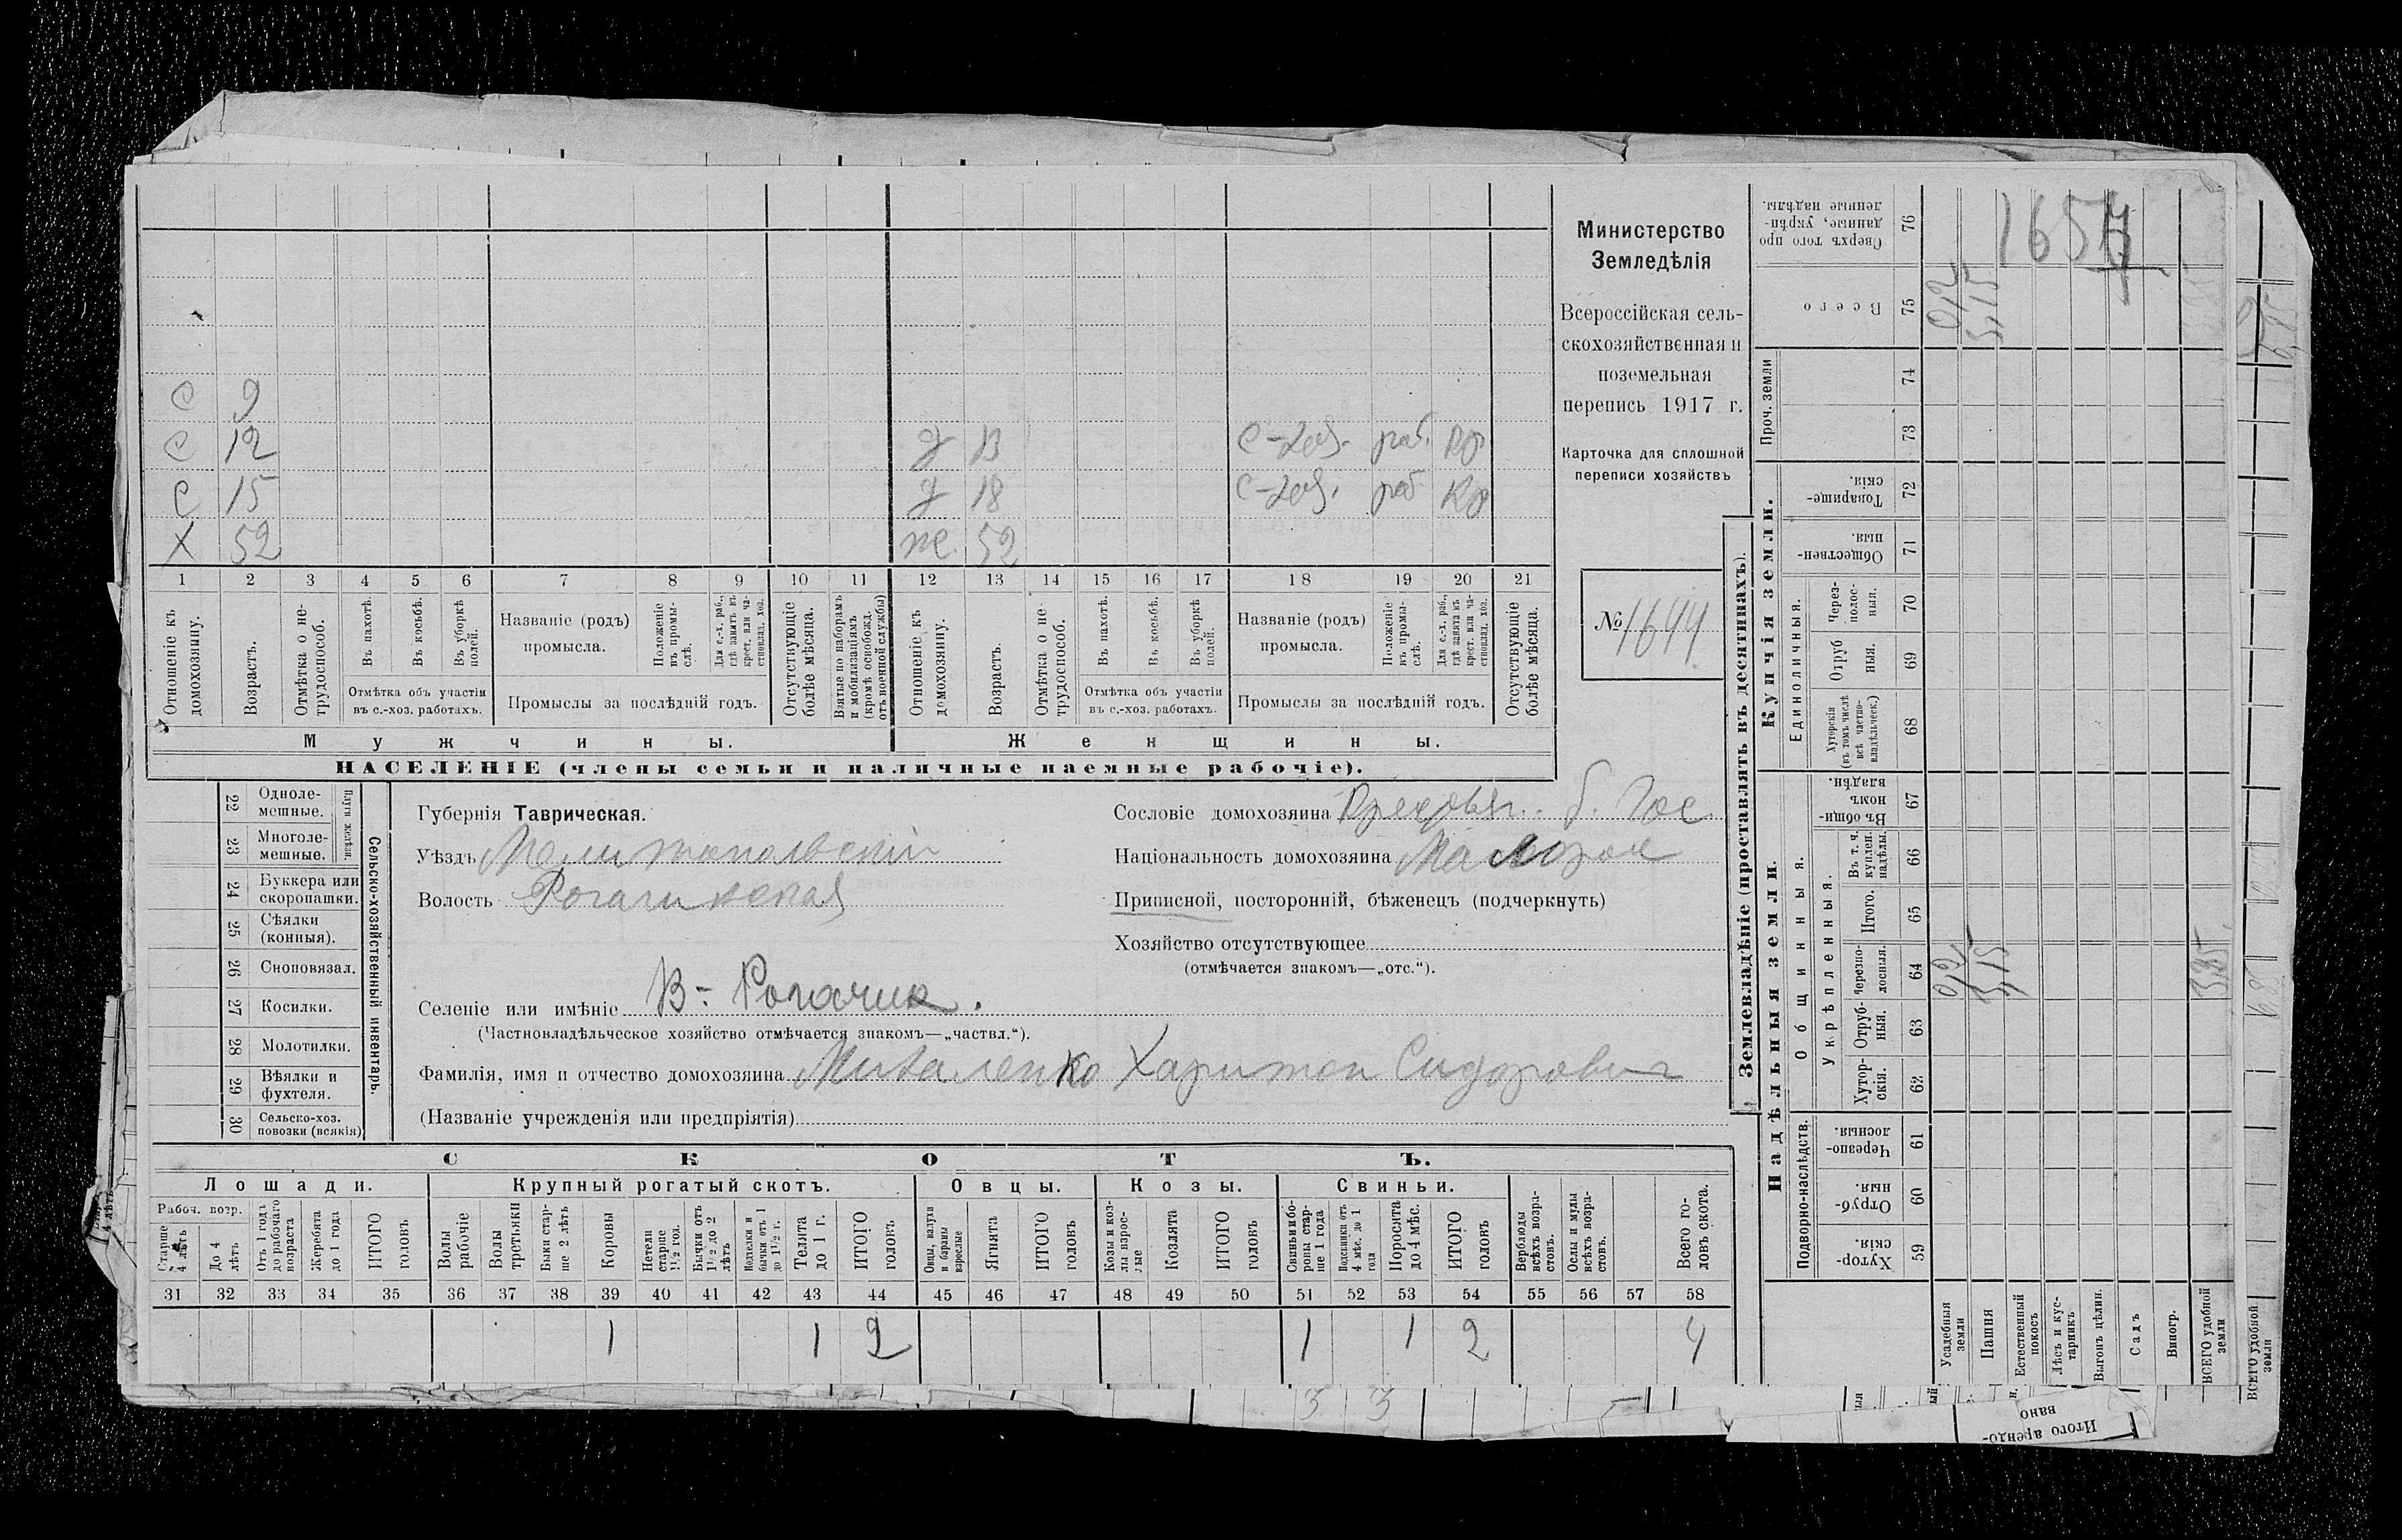 Министерство
Земледѣлія
Всероссійская сель-
скохозяйственная и
поземельная
перепись 1917 г.
Карточка для сплошной
переписи хозяйствъ
№ 1644
1657
с 9
с 12 д 13 с-хоз. раб. кр
с 15 д 18 с-хоз. раб кр
х 52 же. 52
1 2 3 4 5 6 7 8 9 10 11 12 13 14 15 16 17 18 19 20 21
Отношеніе къ домохозяину.
Возрастъ.
Отмѣтка о не-трудоспособ.
Въ пахотѣ.
Въ косьбѣ.
Въ уборкѣ полей.
Отмѣтка объ участіи
въ с.-хоз. работахъ.
Названіе (родъ)
промысла.
Положеніе въ промы-слѣ.
Для с.-х. раб., гдѣ занятъ въ крест. или ча-стновлад. хоз.
Промыслы за послѣдній годъ.
Отсутствующіе болѣе мѣсяца.
Взятые по наборамъ и мобилизаціямъ (кромѣ освобожд. отъ военной службы)
Отношеніе къ домохозяину.
Возрастъ.
Отмѣтка о не-трудоспособ.
Въ пахотѣ.
Въ косьбѣ.
Въ уборкѣ полей.
Отмѣтка объ участіи
въ с.-хоз. работахъ.
Названіе (родъ)
промысла.
Положеніе въ промы-слѣ.
Для с.-х. раб., гдѣ занята въ крест. или ча-стновлад. хоз.
Промыслы за послѣдній годъ.
Отсутствующіе болѣе мѣсяца.
Мужчины. Женщины.
НАСЕЛЕНІЕ (члены семьи и наличные наемные рабочіе).
22 Одноле-мешные.
23 Многоле-мешные.
Плуги желѣзн.
24 Буккера или скоропашки.
25 Сѣялки (конныя).
26 Сноповязал.
27 Косилки.
28 Молотилки.
29 Вѣялки и фухтеля.
30 Сельско-хоз. повозки (всякія)
Сельско-хозяйственный инвентарь.
Губернія Таврическая.
Уѣздъ Мелитопольскій
Волость Рогачикская
Селеніе или имѣніе В-Рогачик.
(Частновладѣльческое хозяйство отмѣчается знакомъ—„частвл.“).
Фамилія, имя и отчество домохозяина Михаленко Харитон Сидорович
(Названіе учрежденія или предпріятія)
Сословіе домохозяина б. Гос.
Національность домохозяина Малорос
Приписной, посторонній, бѣженецъ (подчеркнуть)
Хозяйство отсутствующее
(отмѣчается знакомъ—„отс.“).
СКОТЪ.
Лошади. Крупный рогатый скотъ. Овцы. Козы. Свиньи.
Рабоч. возр.
Старше 4 лѣтъ
До 4 лѣтъ
Отъ 1 года до рабочаго возраста
Жеребята до 1 года
ИТОГО головъ
Волы рабочіе
Волы третьяки
Быки стар-ше 2 лѣтъ
Коровы
Нетели старше 1½ год.
Бычки отъ 1½ до 2 лѣтъ
Нодрелки и бычки отъ 1 до 1½ г.
Телята до 1 г.
ИТОГО головъ
Овцы, валухи и бараны взрослые
Ягнята
ИТОГО головъ
Козы и коз-лы взрос-лые
Козлята
ИТОГО головъ
Свиньи и бо-ровы стар-ше 1 года
Подсвинки отъ 4 мѣс. до 1 года
Поросята до 4 мѣс.
ИТОГО головъ
Верблюды всѣхъ возра-стовъ.
Ослы и мулы всѣхъ возра-стовъ.
Всего го-ловъ скота.
31 32 33 34 35 36 37 38 39 40 41 42 43 44 45 46 47 48 49 50 51 52 53 54 55 56 57 58
1 1 2 1 1 2 4
Землевладѣніе (проставлять въ десятинахъ).
Надѣльныя земли. Купчія земли. Проч. земли
Подворно-наслѣдств. Общинныя. Единоличныя.
Укрѣпленныя.
Хутор-скія. 59
Отруб-ныя. 60
Черезпо-лосныя. 61
Хутор-скія. 62
Отруб-ныя. 63
Черезпо-лосныя. 64
Итого. 65
Въ т. ч. куплен. надѣлы. 66
Въ общин-номъ владѣн. 67
Хуторскія (въ томъ числѣ всѣ частно-владѣльческ.) 68
Отруб ныя. 69
Через-полос-ныя. 70
Обществен-ныя. 71
Товарище-скія. 72
73
74
Всего 75
Сверхъ того про-данные, укрѣп-ленные надѣлы. 76
Усадебныя земли
Пашня
Естественный покосъ
Лѣсъ и кус-тарникъ
Выгонъ цѣлин.
Садъ
Виногр.
ВСЕГО удобной земли
ВСЕГО удобной земли
3 3
Итого арендо-вано